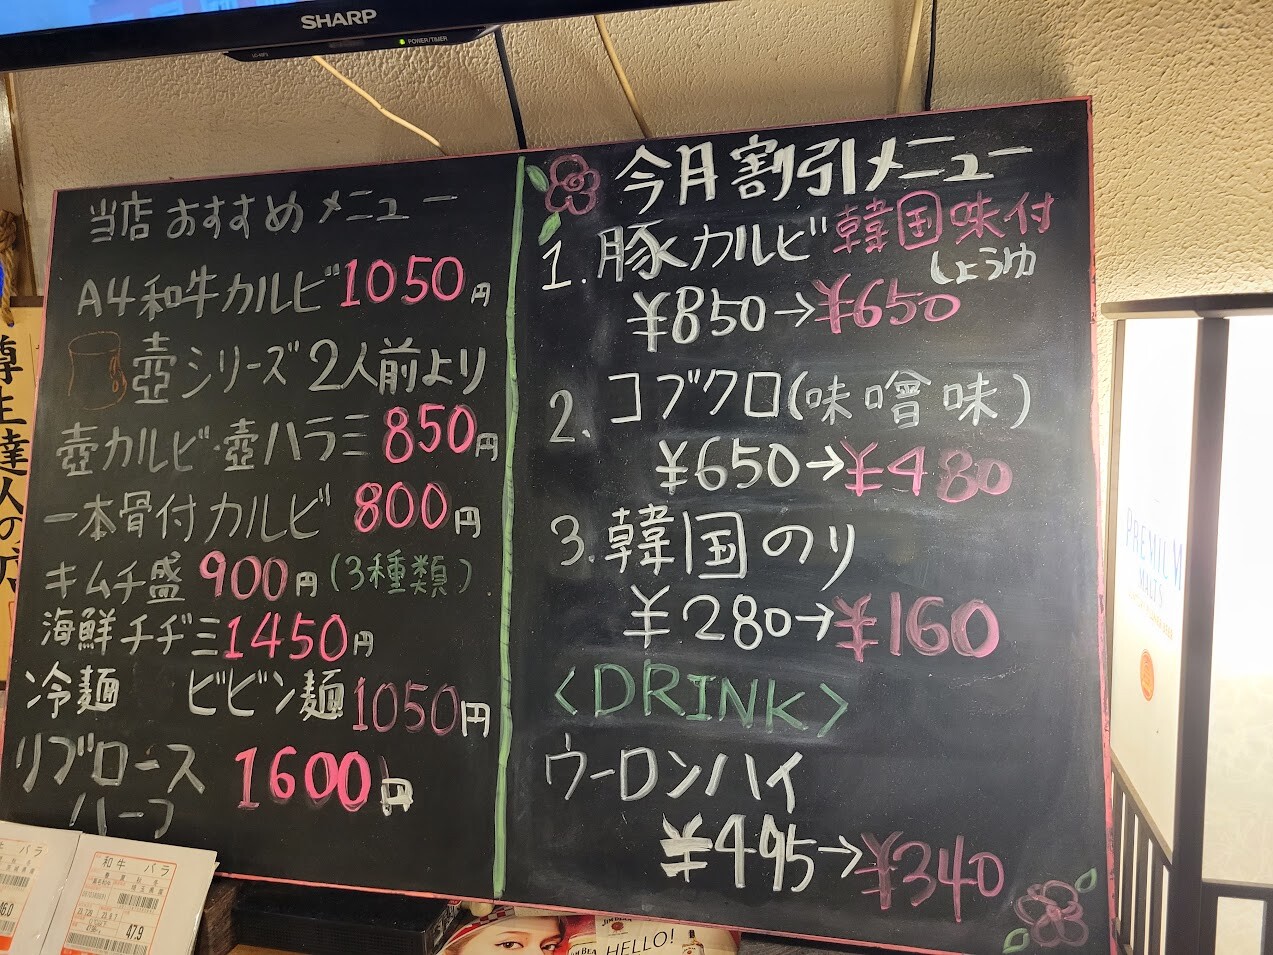 SHARP
POWER/TIMER
当店おすすめメニュー
A4和牛カルビ1050円
壺シリーズ2人前より
壺カルビ・壺ハラミ850円
一本骨付カルビ 800円
キムチ盛900円(3種類)
海鮮チヂミ1450円
冷麺 ビビン麺1050円
リブロース 1600円
ハーフ
今月割引メニュー
1.豚カルビ韓国味付
しょうゆ
¥850→¥650
2.コブクロ(味噌味)
¥650→¥480
3.韓国のり
¥280→¥160
<DRINK>
ウーロンハイ
¥495→¥340
達人の
PREMIUM
MALTS
和牛 バラ
47.9
46.0
JIM BEAM
HELLO!